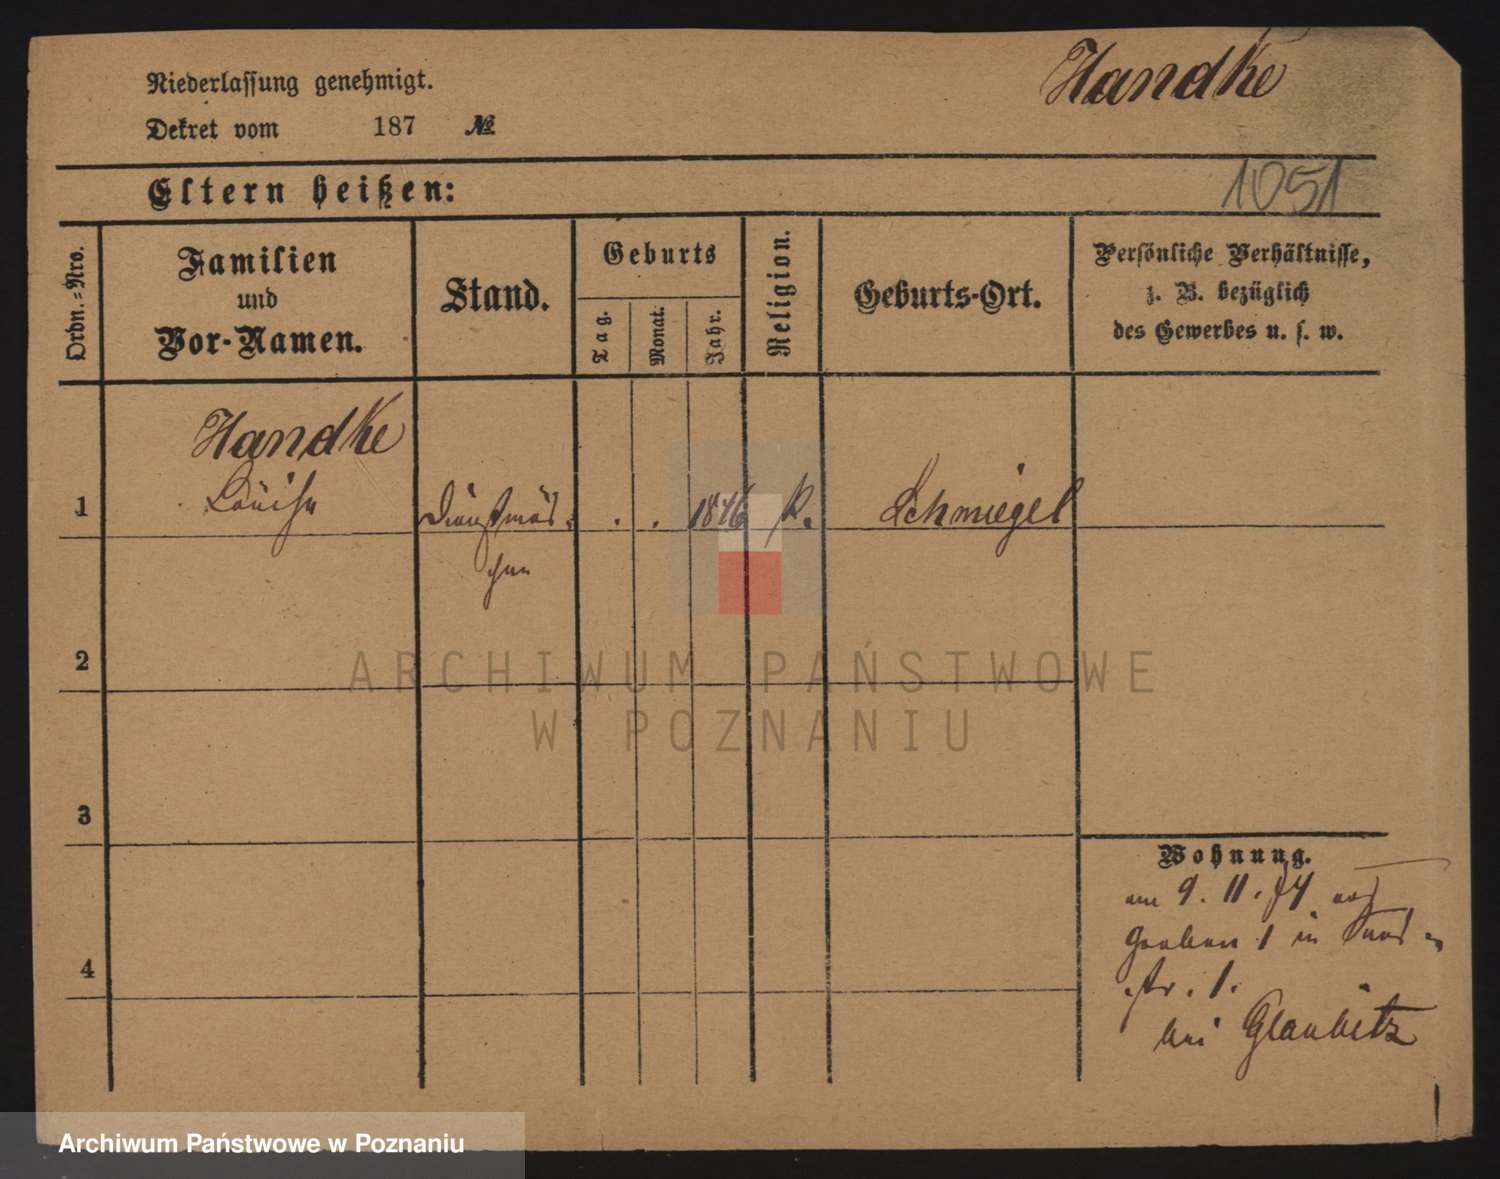 Niederlassung genehmigt.
Handke
Dekret vom 187 №
1051
Eltern heißen:
Ordn.=Nro.
Familien
und
Vor-Namen.
Stand.
Geburts
Tag.
Monat.
Jahr.
Religion.
Geburts-Ort.
Persönliche Verhältnisse,
z. B. bezüglich
des Gewerbes u. s. w.
Handke
1 Louise Dienstmäd= . . 1846 k. Schmiegel
chen
2
3
4
Wohnung.
am 9. 11. 74 aus
Graben 1 in
str. 1.
bei Glaubitz
ARCHIWUM PAŃSTWOWE
W POZNANIU
Archiwum Państwowe w Poznaniu